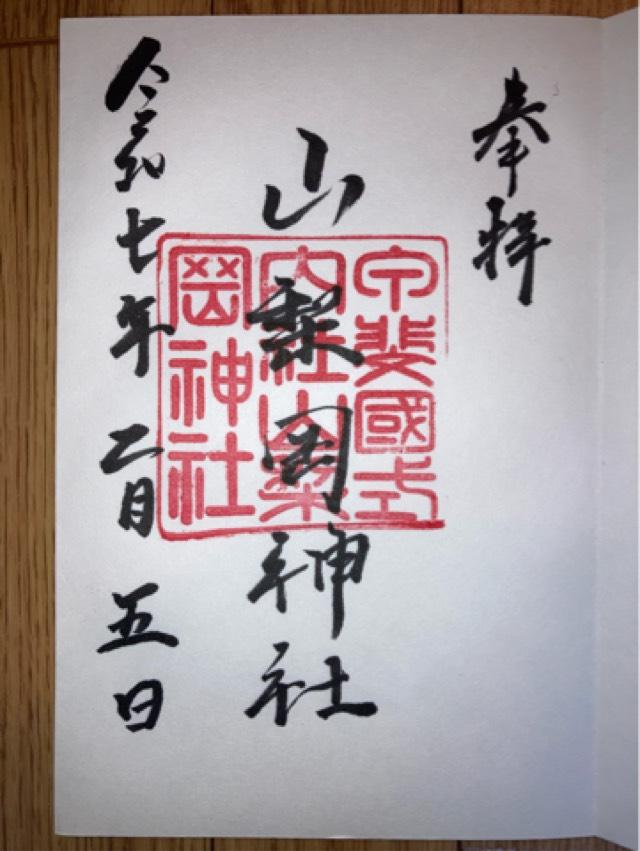 奉拝
山梨岡神社
甲斐國式
内社山梨
岡神社
令和七年二月五日